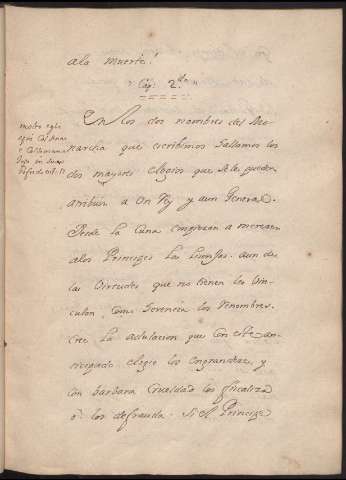 ala muerte!
Cap. 2.
En los dos nombres del Mo-
narcha que escribimos hallamos los
dos mayores elogios que se le pueden
atribuir a un Rey y aun General.
Desde la Cuna empiezan a merecer
alos Principes las lisonjas. aun de
las Virtudes que no tienen los vin-
culan, como herencia los renombres.
Cree la adulacion que con este an-
ticipado elogio los engrandeze, y
con barbara crueldad los
ô los defrauda. Si el Principe